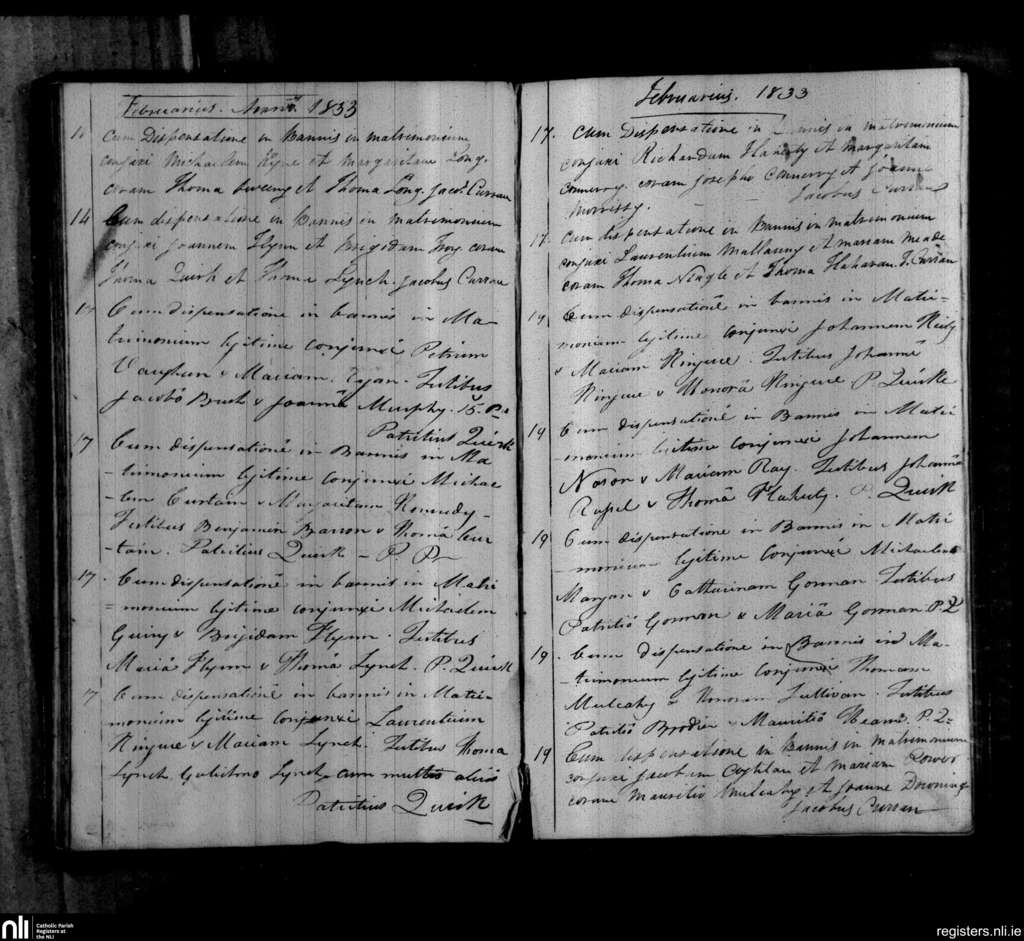 Februarius. Anni 1833
cum Dispensatione in Bannis in matrimonium
conjuxi Michaelem Kyne et Margaritam Long.
coram Thoma Sweeny et Thoma Long. Jacob. Curran
14 Cum dispensatione in Bannis in matrimonium
conjuxi Joannem Flynn et Brigidam Troy coram
Thoma Quirk et Thoma Lynch. Jacobus Curran
17 Cum dispensatione in bannis in Ma-
trimonium legitime conjunxi Petrum
Vaughan & Mariam Egan. Testibus
Jacobo Burk & Joanna Murphy. 15.
Patritius Quirk
17 Cum dispensatione in Bannis in Ma
-trimonium legitime conjunxi Michae
-lem Curtain & Margaritam Kennedy-
Testibus Benjamin Barron & Thomâ Cur
-tain. Patritius Quirk - P. P.
17. Cum dispensatione in bannis in Matri
=monium legitime conjunxi Michaelem
Guiry & Brigidam Flynn. Testibus
Mariâ Flynn & Thomâ Lynch. P. Quirk
17 Cum dispensatione in bannis in Matri-
monium legitime conjunxi Laurentium
Kingure & Mariam Lynch. Testibus Thoma
Lynch, Lynch cum multis aliis
Patritius Quirk
Februarius. 1833
17. cum Dispensatione in Bannis in matrimonium
conjuxi Richardum Flaherty et Margaritam
Connerry. coram Josepho Connerry et Joanne
Morrissy. Jacobus Curran
17. Cum dispensatione in Bannis in matrimonium
conjuxi Laurentium Mallowny et Mariam Meade
coram Thoma Neagle et Thoma Flahavan. J. Curran
19 Cum dispensatione in bannis in Matri-
monium legitime conjunxi Johannem
& Mariam Kingure. Testibus Johannê
Kingure & Honorâ Kingure P. Quirke
19 Cum dispensatione in Bannis in Matri
-monium legitime conjunxi Johannem
Nason & Mariam Ray. Testibus Johannê
& Thomâ Flaherty. P. Quirk
19 Cum dispensatione in Bannis in Matri
-monium legitime conjunxi Michaelem
Morgan & Catharinam Gorman Testibus
Patritio Gorman & Mariâ Gorman P. Q
19. Cum dispensatione in Bannis in Ma-
-trimonium legitime conjunxi Thomam
Mulcahy & Honoram Sullivan. Testibus
Patritiô Brodier & Mauritiô Heam. P. Q=
19 Cum dispensatione in Bannis in matrimonium
conjuxi Jacobum Coghlan et Mariam Power
coram Mauritio Mulcahy et Joanne Downing
Jacobus Curran
nli
Catholic Parish
Registers at
the NLI
registers.nli.ie